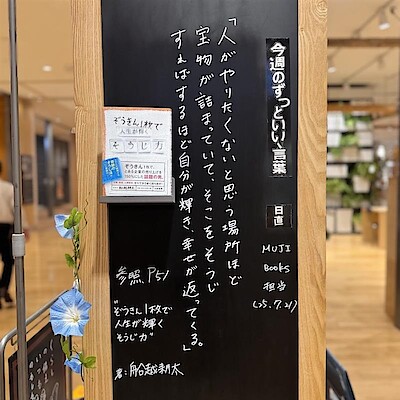 今週のずっといい言葉
日直
MUJI
BOOKS
担当
('25.7.21)
「人がやりたくないと思う場所ほど
宝物が詰まっていて、そこをそうじ
すればするほど自分が輝き、幸せが返ってくる。」
参照 P51
"ぞうきん1枚で
人生が輝く
そうじ力"
著:舟谷越耕太
ぞうきん1枚で
人生が輝く
そうじ力
ぞうきん1枚で、